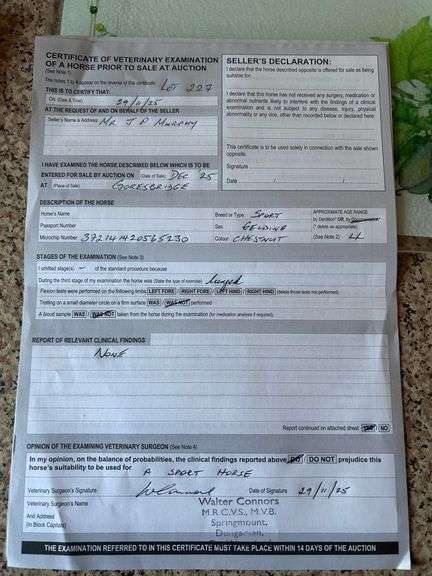 CERTIFICATE OF VETERINARY EXAMINATION
OF A HORSE PRIOR TO SALE AT AUCTION
(See Note 1)
The notes 1 to 4 appear on the reverse of this certificate. Lot 227
THIS IS TO CERTIFY THAT:
On: (Date & Time) 29/11/25
AT THE REQUEST OF AND ON BEHALF OF THE SELLER
Seller's Name & Address Mr. J P Murphy
I HAVE EXAMINED THE HORSE DESCRIBED BELOW WHICH IS TO BE
ENTERED FOR SALE BY AUCTION ON (Date of Sale) DEC 25
AT (Place of Sale) GORESBRIDGE
SELLER'S DECLARATION:
I declare that the horse described opposite is offered for sale as being
suitable for:
I declare that the horse described has not received any surgery, medication or
abnormal nutrients likely to interfere with the findings of a clinical
examination and is not subject to any disease, injury, physical
abnormality or any vice, other than recorded below or declared here:
This certificate is to be used solely in connection with the sale shown
opposite.
Signature
Date / /
DESCRIPTION OF THE HORSE
Horse's Name
Breed or Type SPORT
APPROXIMATE AGE RANGE
Passport Number
Sex GELDING
by Dentition* OR by
(* delete as appropriate)
Microchip Number 372141420565230
Colour CHESTNUT
(See Note 2) 4
STAGES OF THE EXAMINATION (See Note 3)
I omitted stage/s - of the standard procedure because
During the third stage of my examination the horse was (State the type of exercise) lunged
Flexion tests were performed on the following limbs: LEFT FORE / RIGHT FORE / LEFT HIND / RIGHT HIND (delete those tests not performed)
Trotting on a small diameter circle on a firm surface WAS / WAS NOT performed
A blood sample WAS / WAS NOT taken from the horse during the examination (for medication analysis if required).
REPORT OF RELEVANT CLINICAL FINDINGS
NONE
Report continued on attached sheet: YES / NO
OPINION OF THE EXAMINING VETERINARY SURGEON (See Note 4)
In my opinion, on the balance of probabilities, the clinical findings reported above DO / DO NOT prejudice this
horse's suitability to be used for
A SPORT HORSE
Veterinary Surgeon's Signature
Date of Signature 29/11/25
Veterinary Surgeon's Name
And Address
(In Block Capitals)
Walter Connors
M.R.C.V.S., M.V.B.
Springmount,
Dungarvan,
THE EXAMINATION REFERRED TO IN THIS CERTIFICATE MUST TAKE PLACE WITHIN 14 DAYS OF THE AUCTION